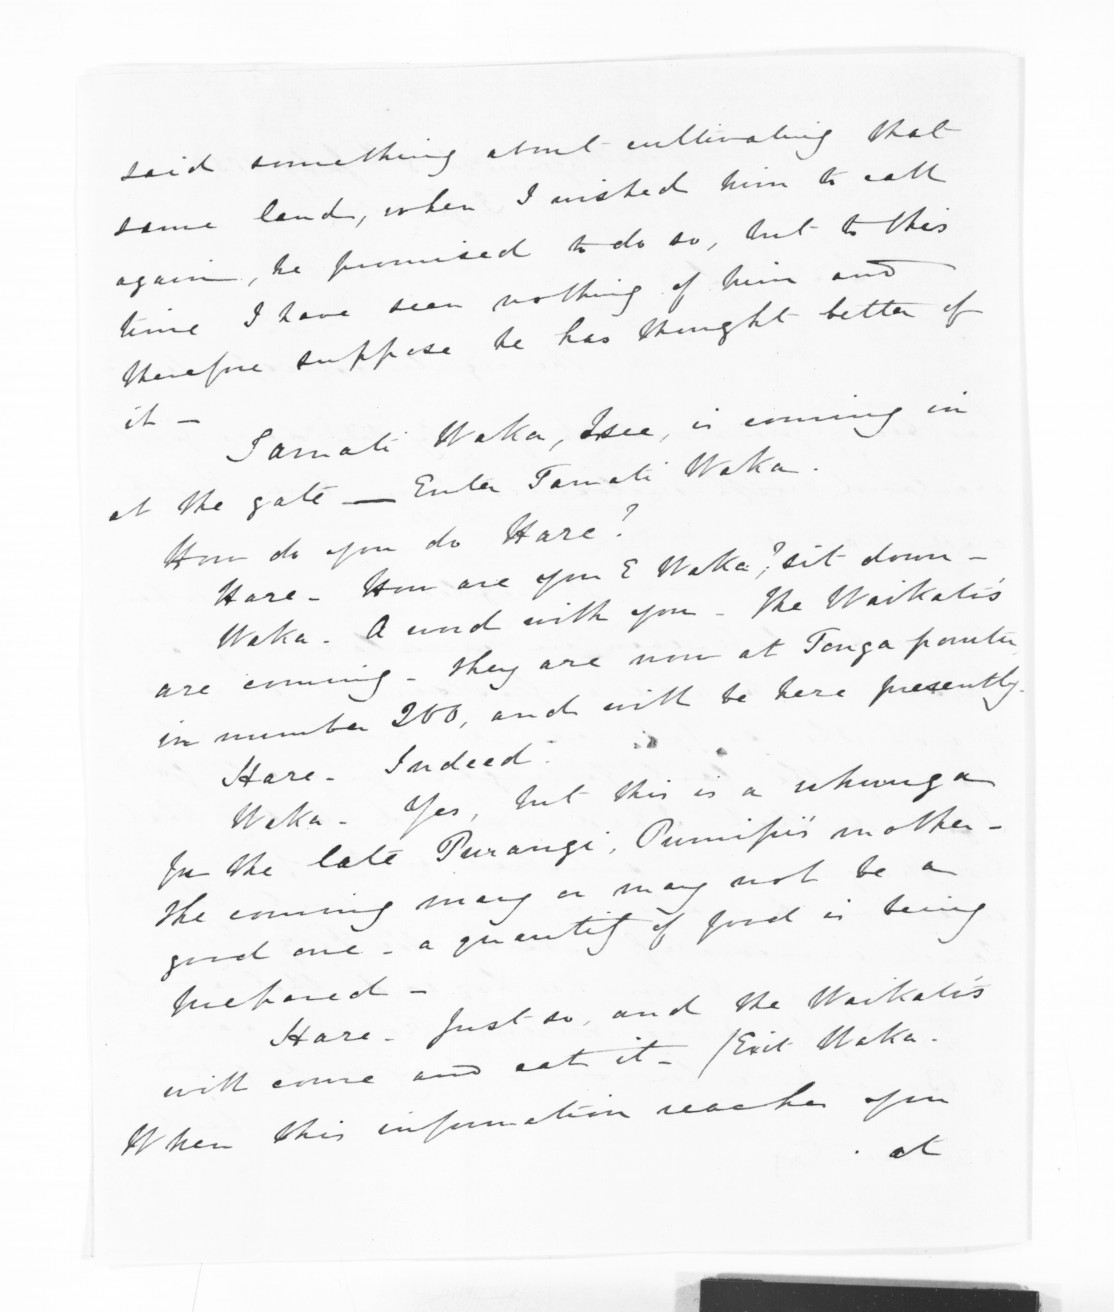 said something about cultivating that
same land, when I wished him to call
again, he promised to do so, but to this
time I have seen nothing of him and
therefore suppose he has thought better of
it —
Tamati Waka, I see, is coming in
at the gate — Enter Tamati Waka.
How do you do Hare?
Hare - How are you E Waka? sit down -
Waka - A word with you - The Waikato's
are coming - they are now at Tonga poutu
in number 200, and will be here presently.
Hare - Indeed.
Waka - Yes, but this is a uhunga
for the late Purangi, Pumipi's mother -
the coming may or may not be a
good one - a quantity of food is being
prepared -
Hare - Just so, and the Waikato's
will come and eat it - /Exit Waka.
When this information reaches you
at